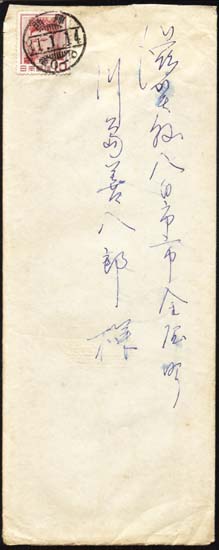 滋賀縣八日市市金屋町
川島善八郎 様
日本郵便